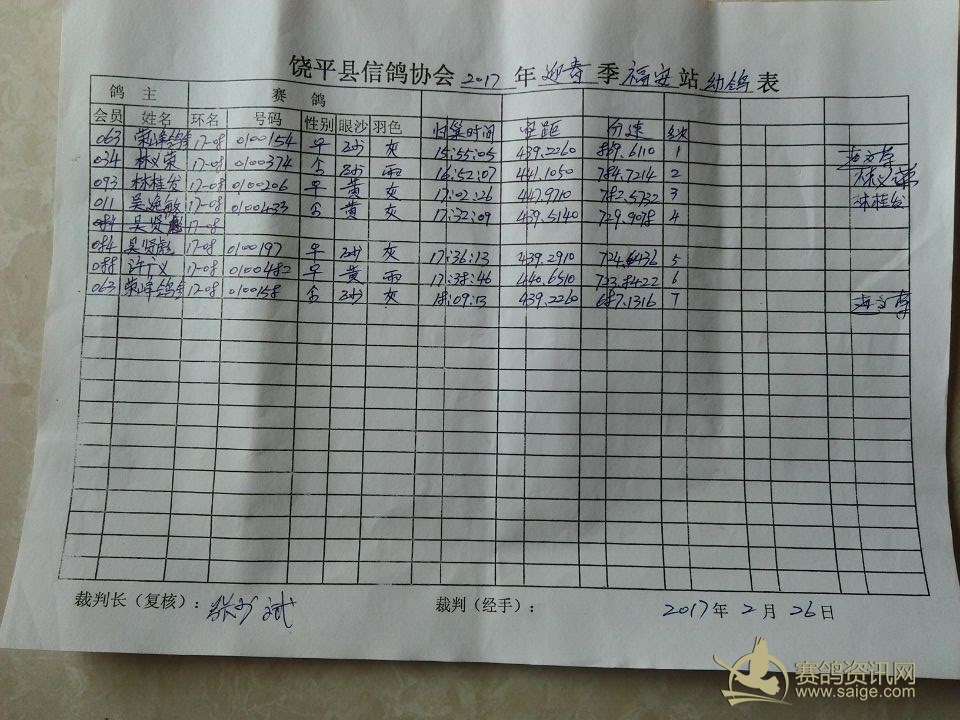 饶平县信鸽协会 2017 年 迎春 季 福安 站 幼鸽 表
鸽 主 赛 鸽
会员 姓名 环名 号码 性别 眼沙 羽色 归巢时间 空距 分速 名次
063 荣峰鸽舍 17-08 0100154 ♀ 砂 灰 15:55:05 439.2260 849.6110 1
034 林义荣 17-08 0100374 ♂ 砂 雨 16:52:07 441.1050 784.7214 2 林义荣
093 林桂发 17-08 0100206 ♀ 黄 灰 17:02:26 447.9710 782.5732 3 林桂发
011 吴逸敏 17-08 0100433 ♂ 黄 灰 17:32:09 439.5140 729.9078 4
084 吴贤彪 17-08
084 吴贤彪 17-08 0100197 ♀ 砂 灰 17:36:13 439.2910 724.6436 5
088 许广义 17-08 0100482 ♀ 黄 雨 17:38:46 440.6510 723.8422 6
063 荣峰鸽舍 17-08 0100158 ♂ 砂 灰 18:09:13 439.2260 687.1316 7
裁判长（复核）： 裁判（经手）： 2017 年 2 月 26 日
赛鸽资讯网
www.saige.com